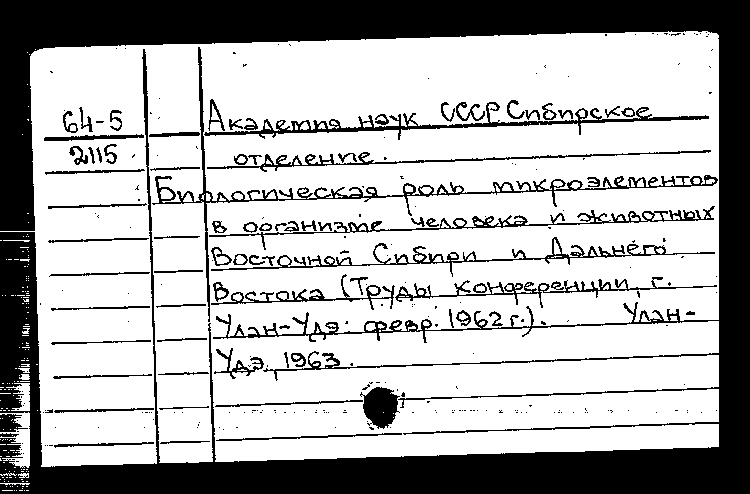 64-5 Академия наук СССР Сибирское
2115 отделение.
Биологическая роль микроэлементов
в организме человека и животных
Восточной Сибири и Дальнего
Востока (Труды конференции, г.
Улан-Удэ. февр. 1962 г.). Улан-
Удэ, 1963.